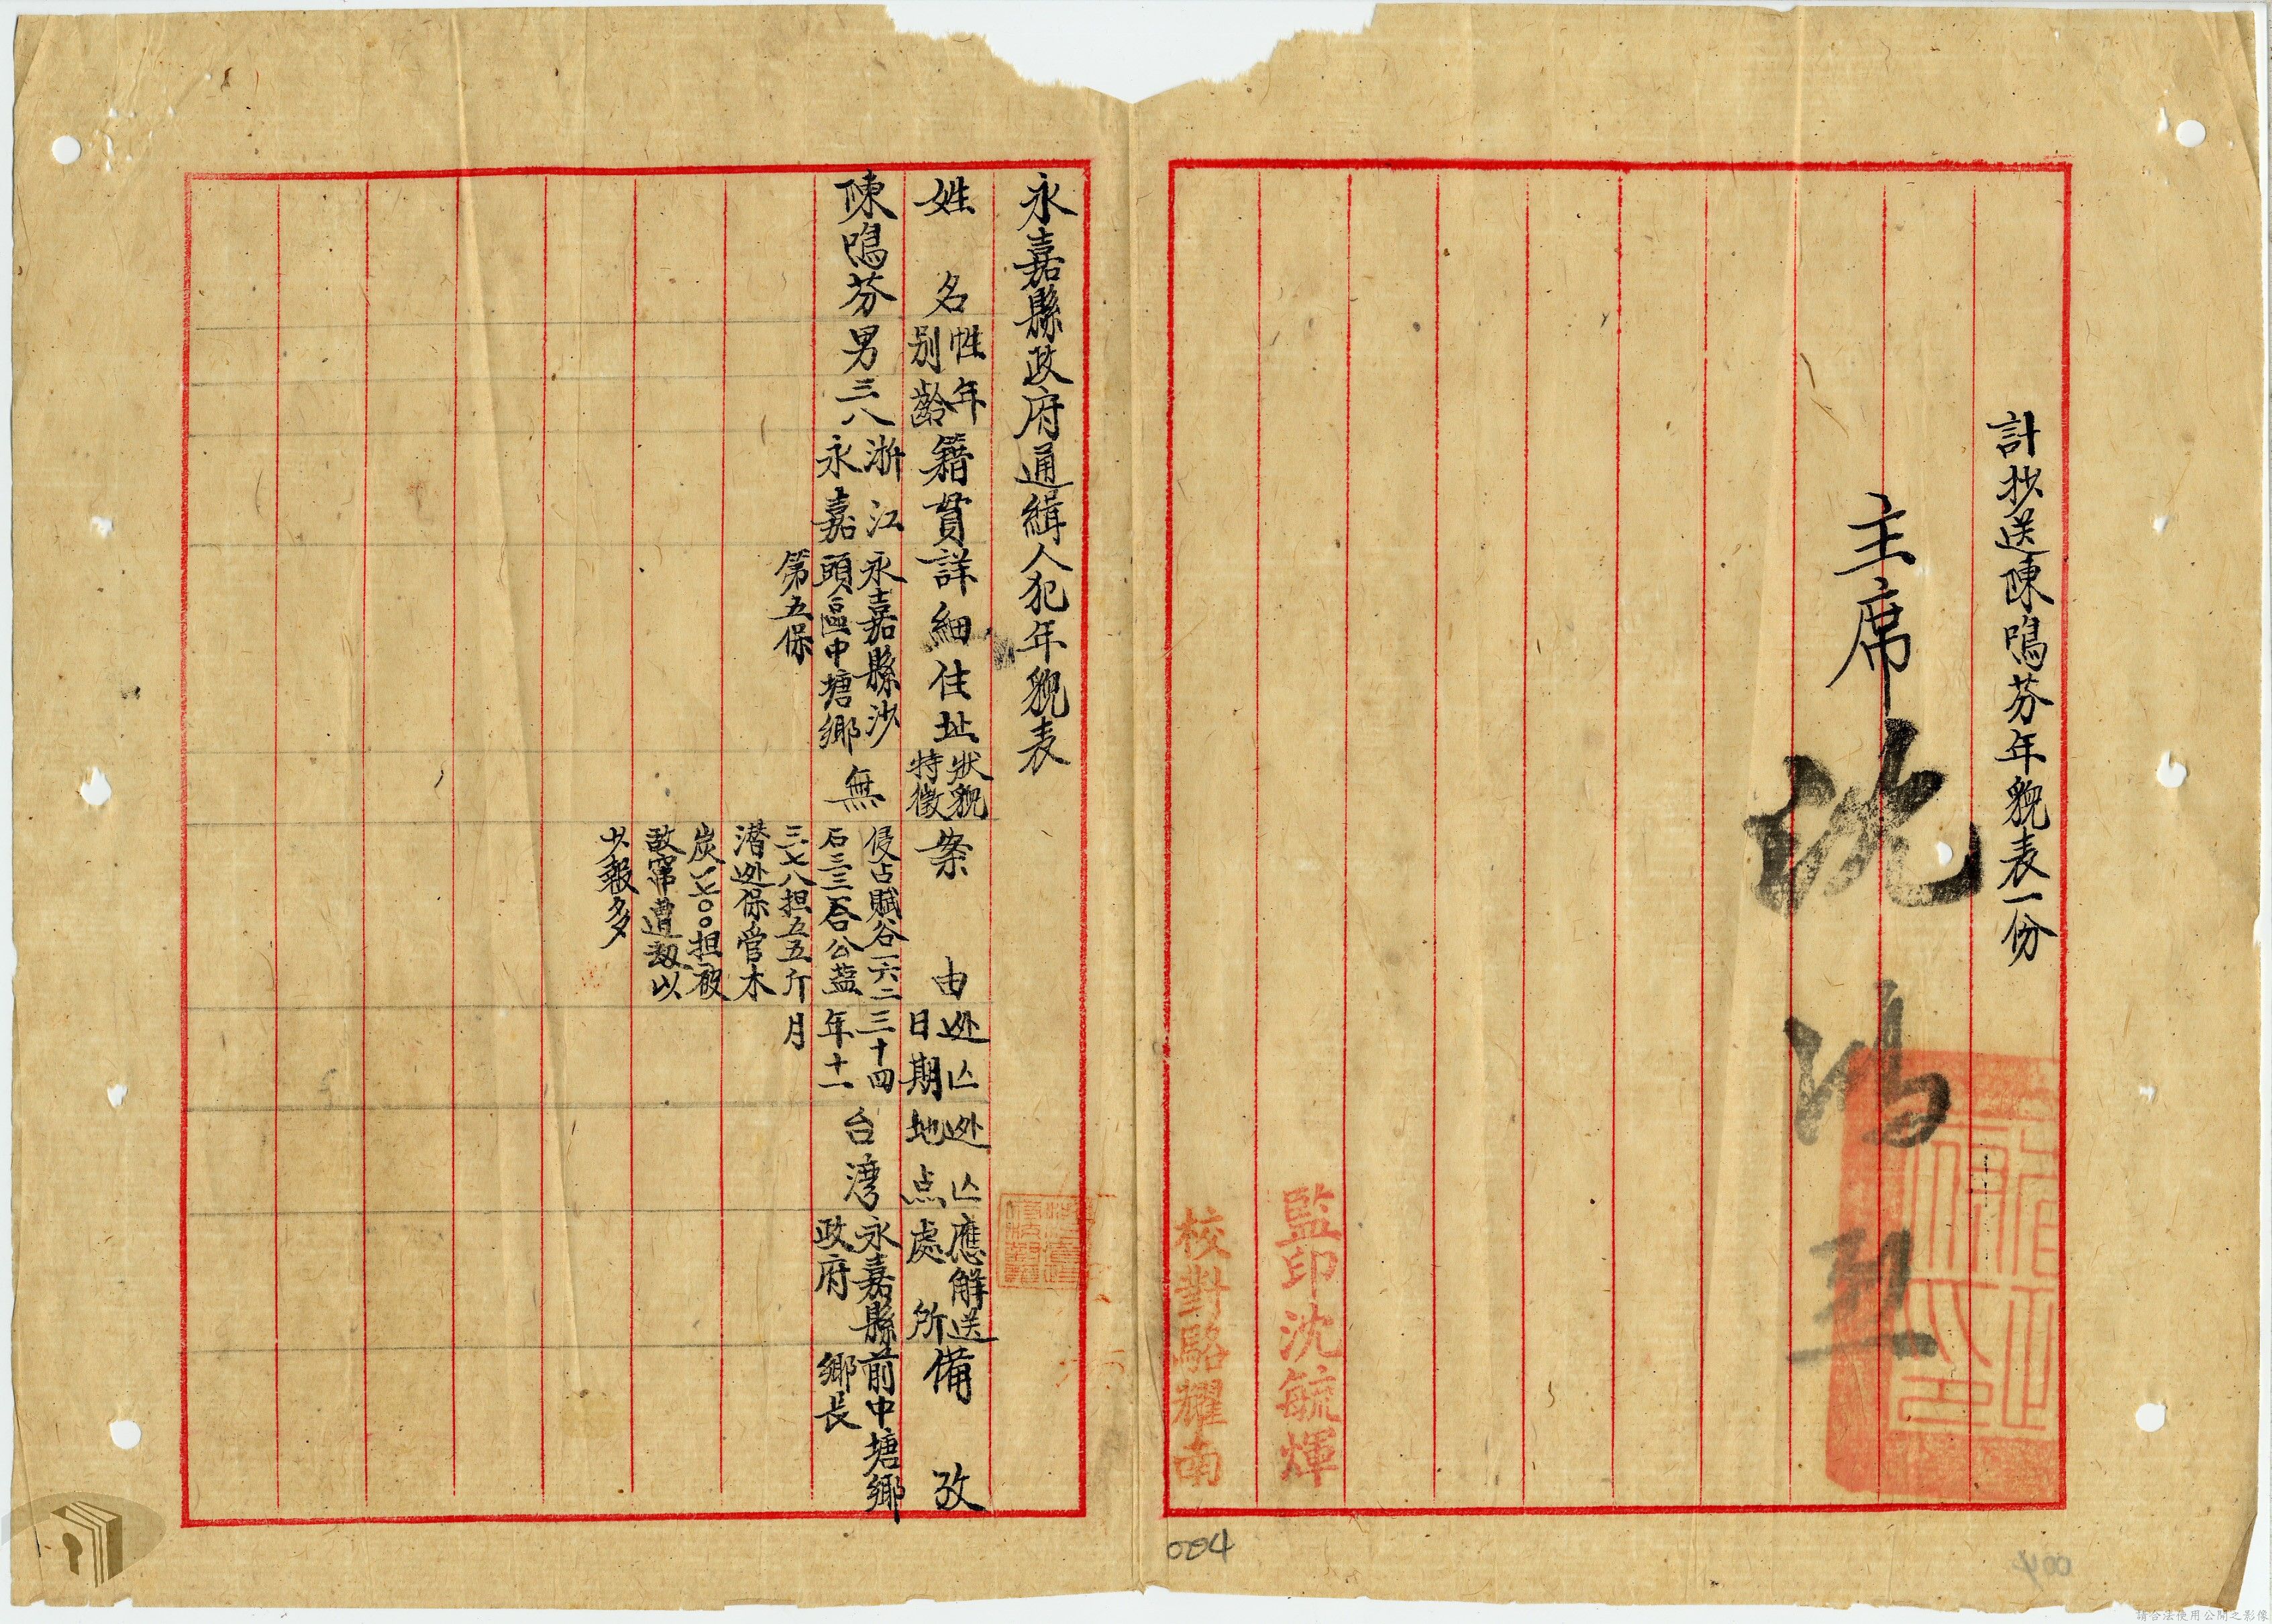 計抄送陳鳴芬年貌表一份
主席 沈鴻烈
監印沈毓輝
校對駱耀南
永嘉縣政府通緝人犯年貌表
姓名
性別
年齡
籍貫
詳細住址
狀貌特徵
案由
逃亡日期
逃亡地点
應解送處所
備攷
陳鳴芬
男
三八
浙江
永嘉
永嘉縣沙
頭區中塘鄉
第五保
無
侵占賦谷一六二
石三三合公益
三七八担五五斤
潜逃保管木
炭一七〇〇担被
敌窜遭刼以
少報多
三十四
年十一
月
台灣
永嘉縣
政府
前中塘鄉
鄉長
004
請合法使用公開之影像